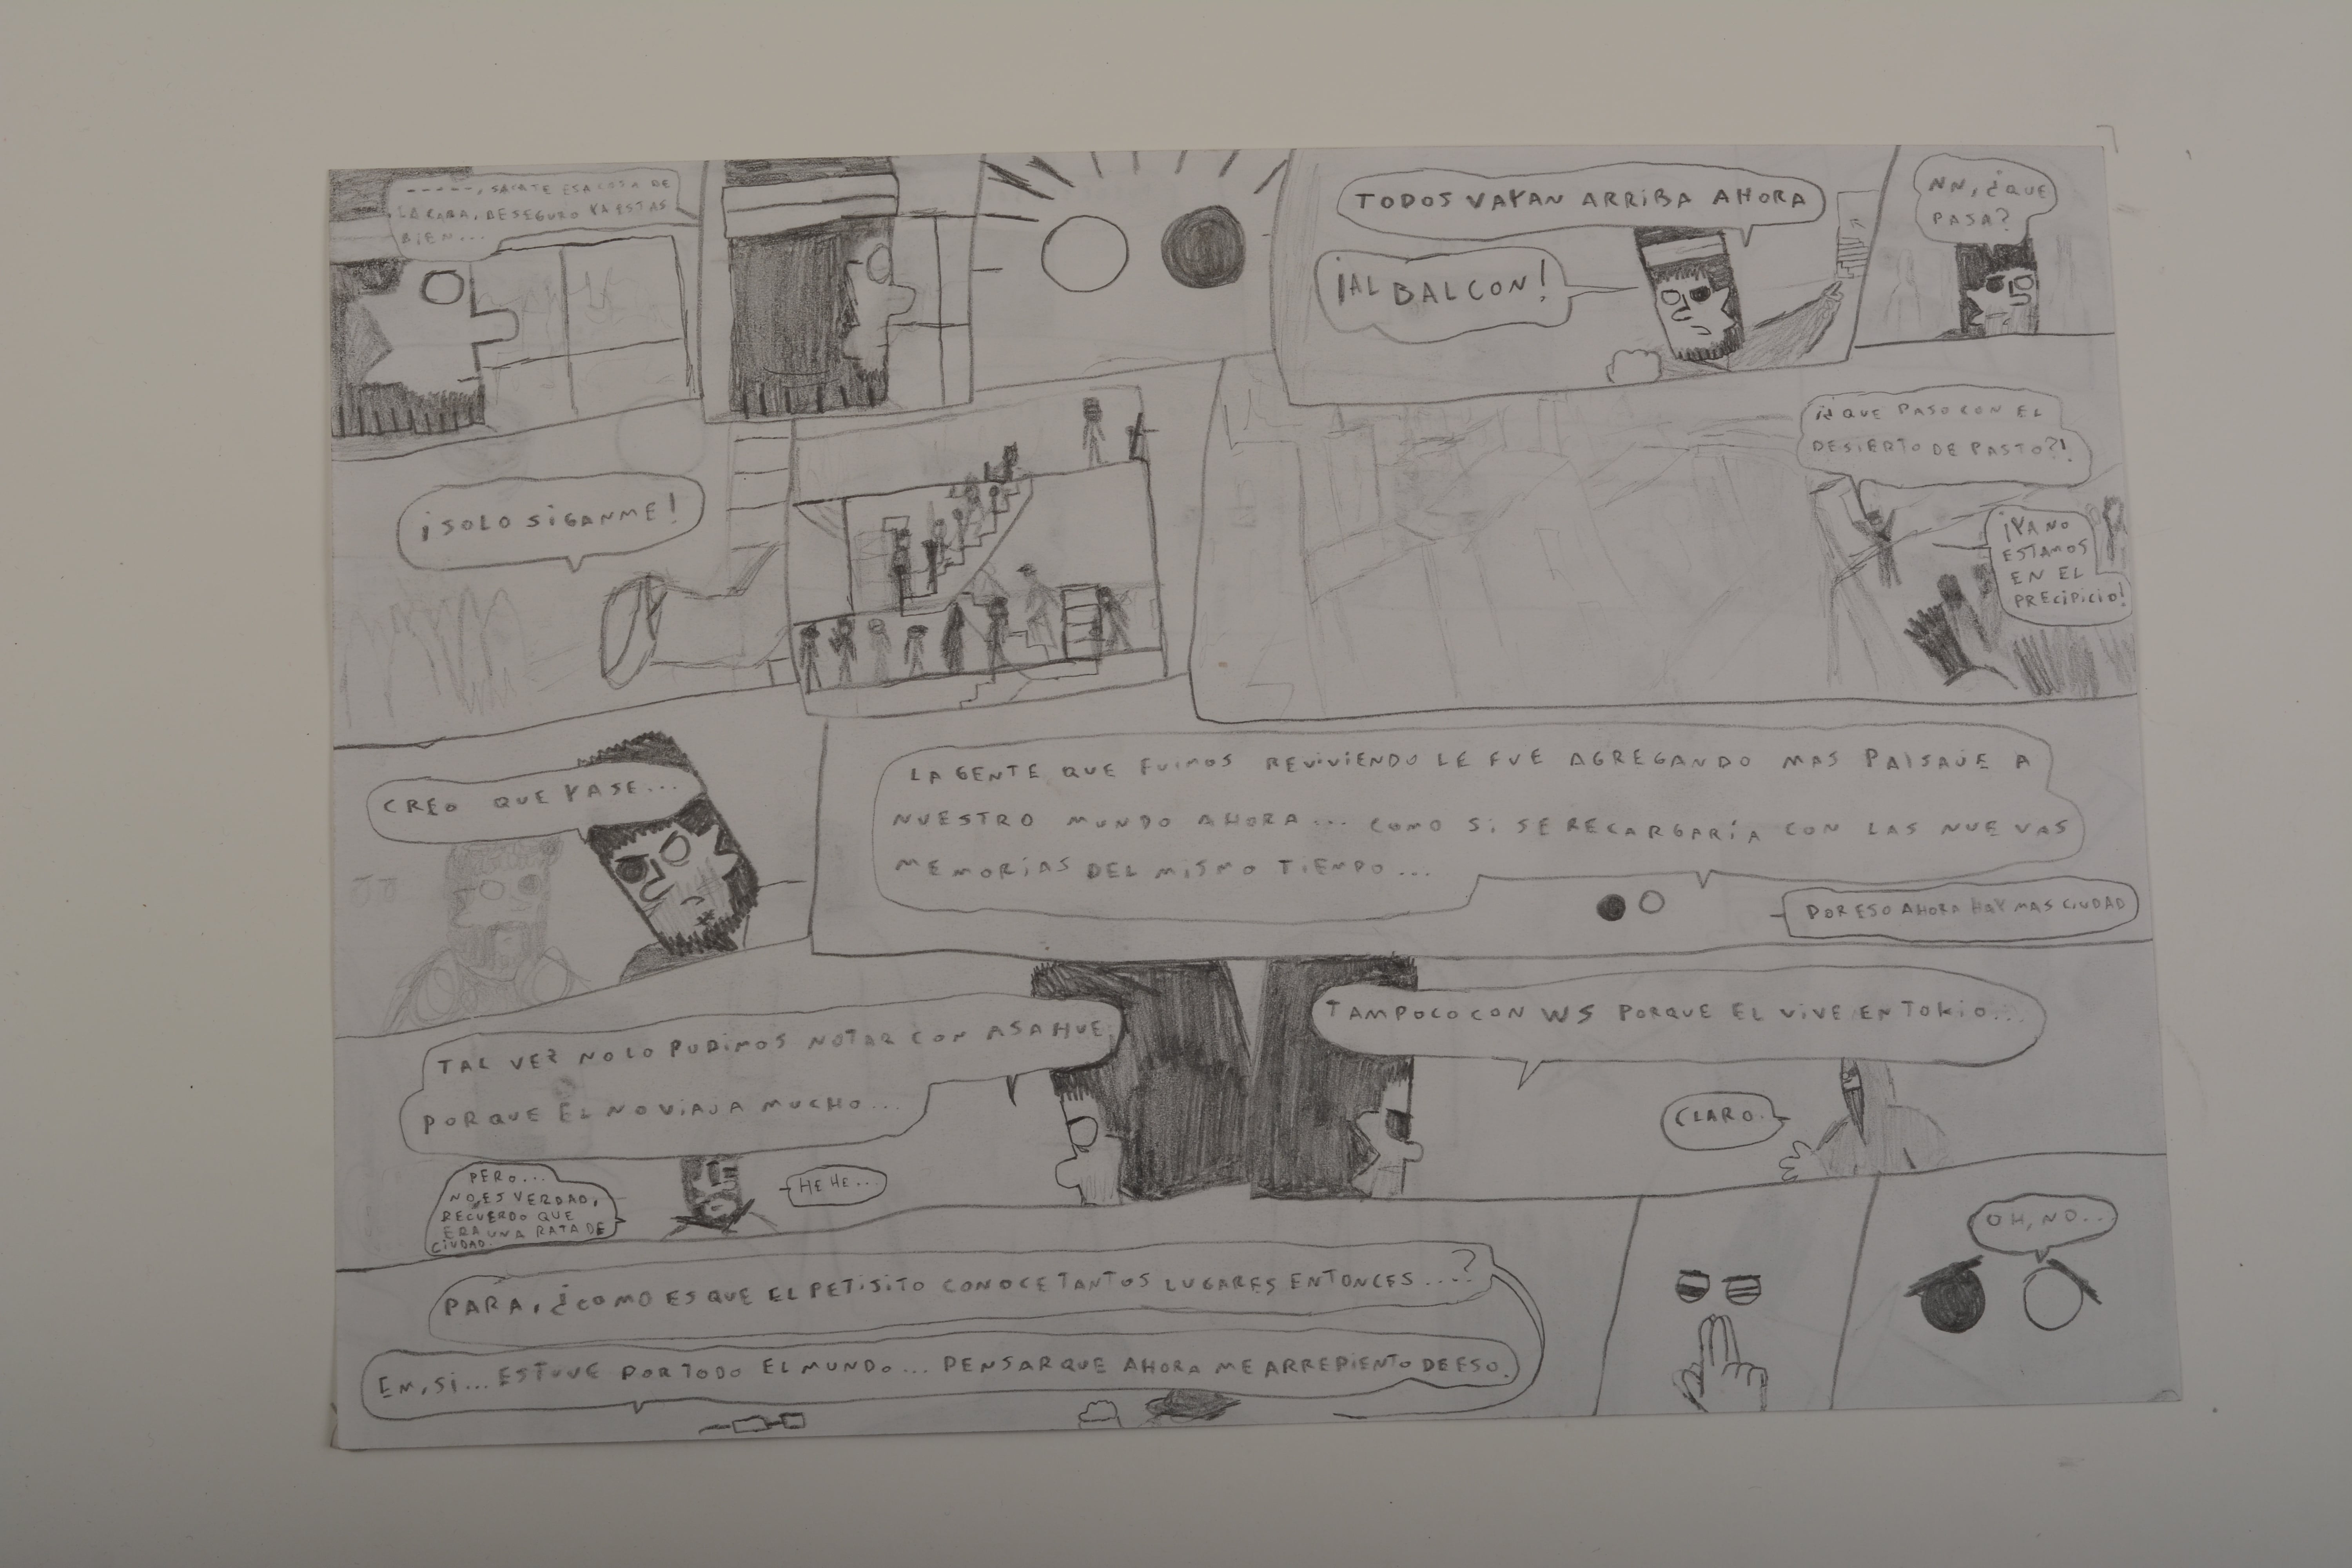 -----, SACATE ESA COSA DE
LA CARA, DE SEGURO YA ESTAS
BIEN...
TODOS VAYAN ARRIBA AHORA
¡AL BALCON!
NN, ¿QUE
PASA?
¡SOLO SIGANME!
¡¿QUE PASO CON EL
DESIERTO DE PASTO?!
¡YA NO
ESTAMOS
EN EL
PRECIPICIO!
CREO QUE YA SE...
LA GENTE QUE FUIMOS REVIVIENDO LE FUE AGREGANDO MAS PAISAJE A
NUESTRO MUNDO AHORA... COMO SI SE RECARGARÍA CON LAS NUEVAS
MEMORIAS DEL MISMO TIEMPO...
POR ESO AHORA HAY MAS CIUDAD
TAL VEZ NO LO PUDIMOS NOTAR CON ASAHUE,
PORQUE ÉL NO VIAJA MUCHO...
TAMPOCO CON WS PORQUE EL VIVE EN TOKIO...
CLARO.
PERO...
NO, ES VERDAD,
RECUERDO QUE
ERA UNA RATA DE
CIUDAD.
HE HE...
PARA, ¿COMO ES QUE EL PETISITO CONOCE TANTOS LUGARES ENTONCES...?
EM, SI... ESTUVE POR TODO EL MUNDO... PENSAR QUE AHORA ME ARREPIENTO DE ESO.
OH, NO...